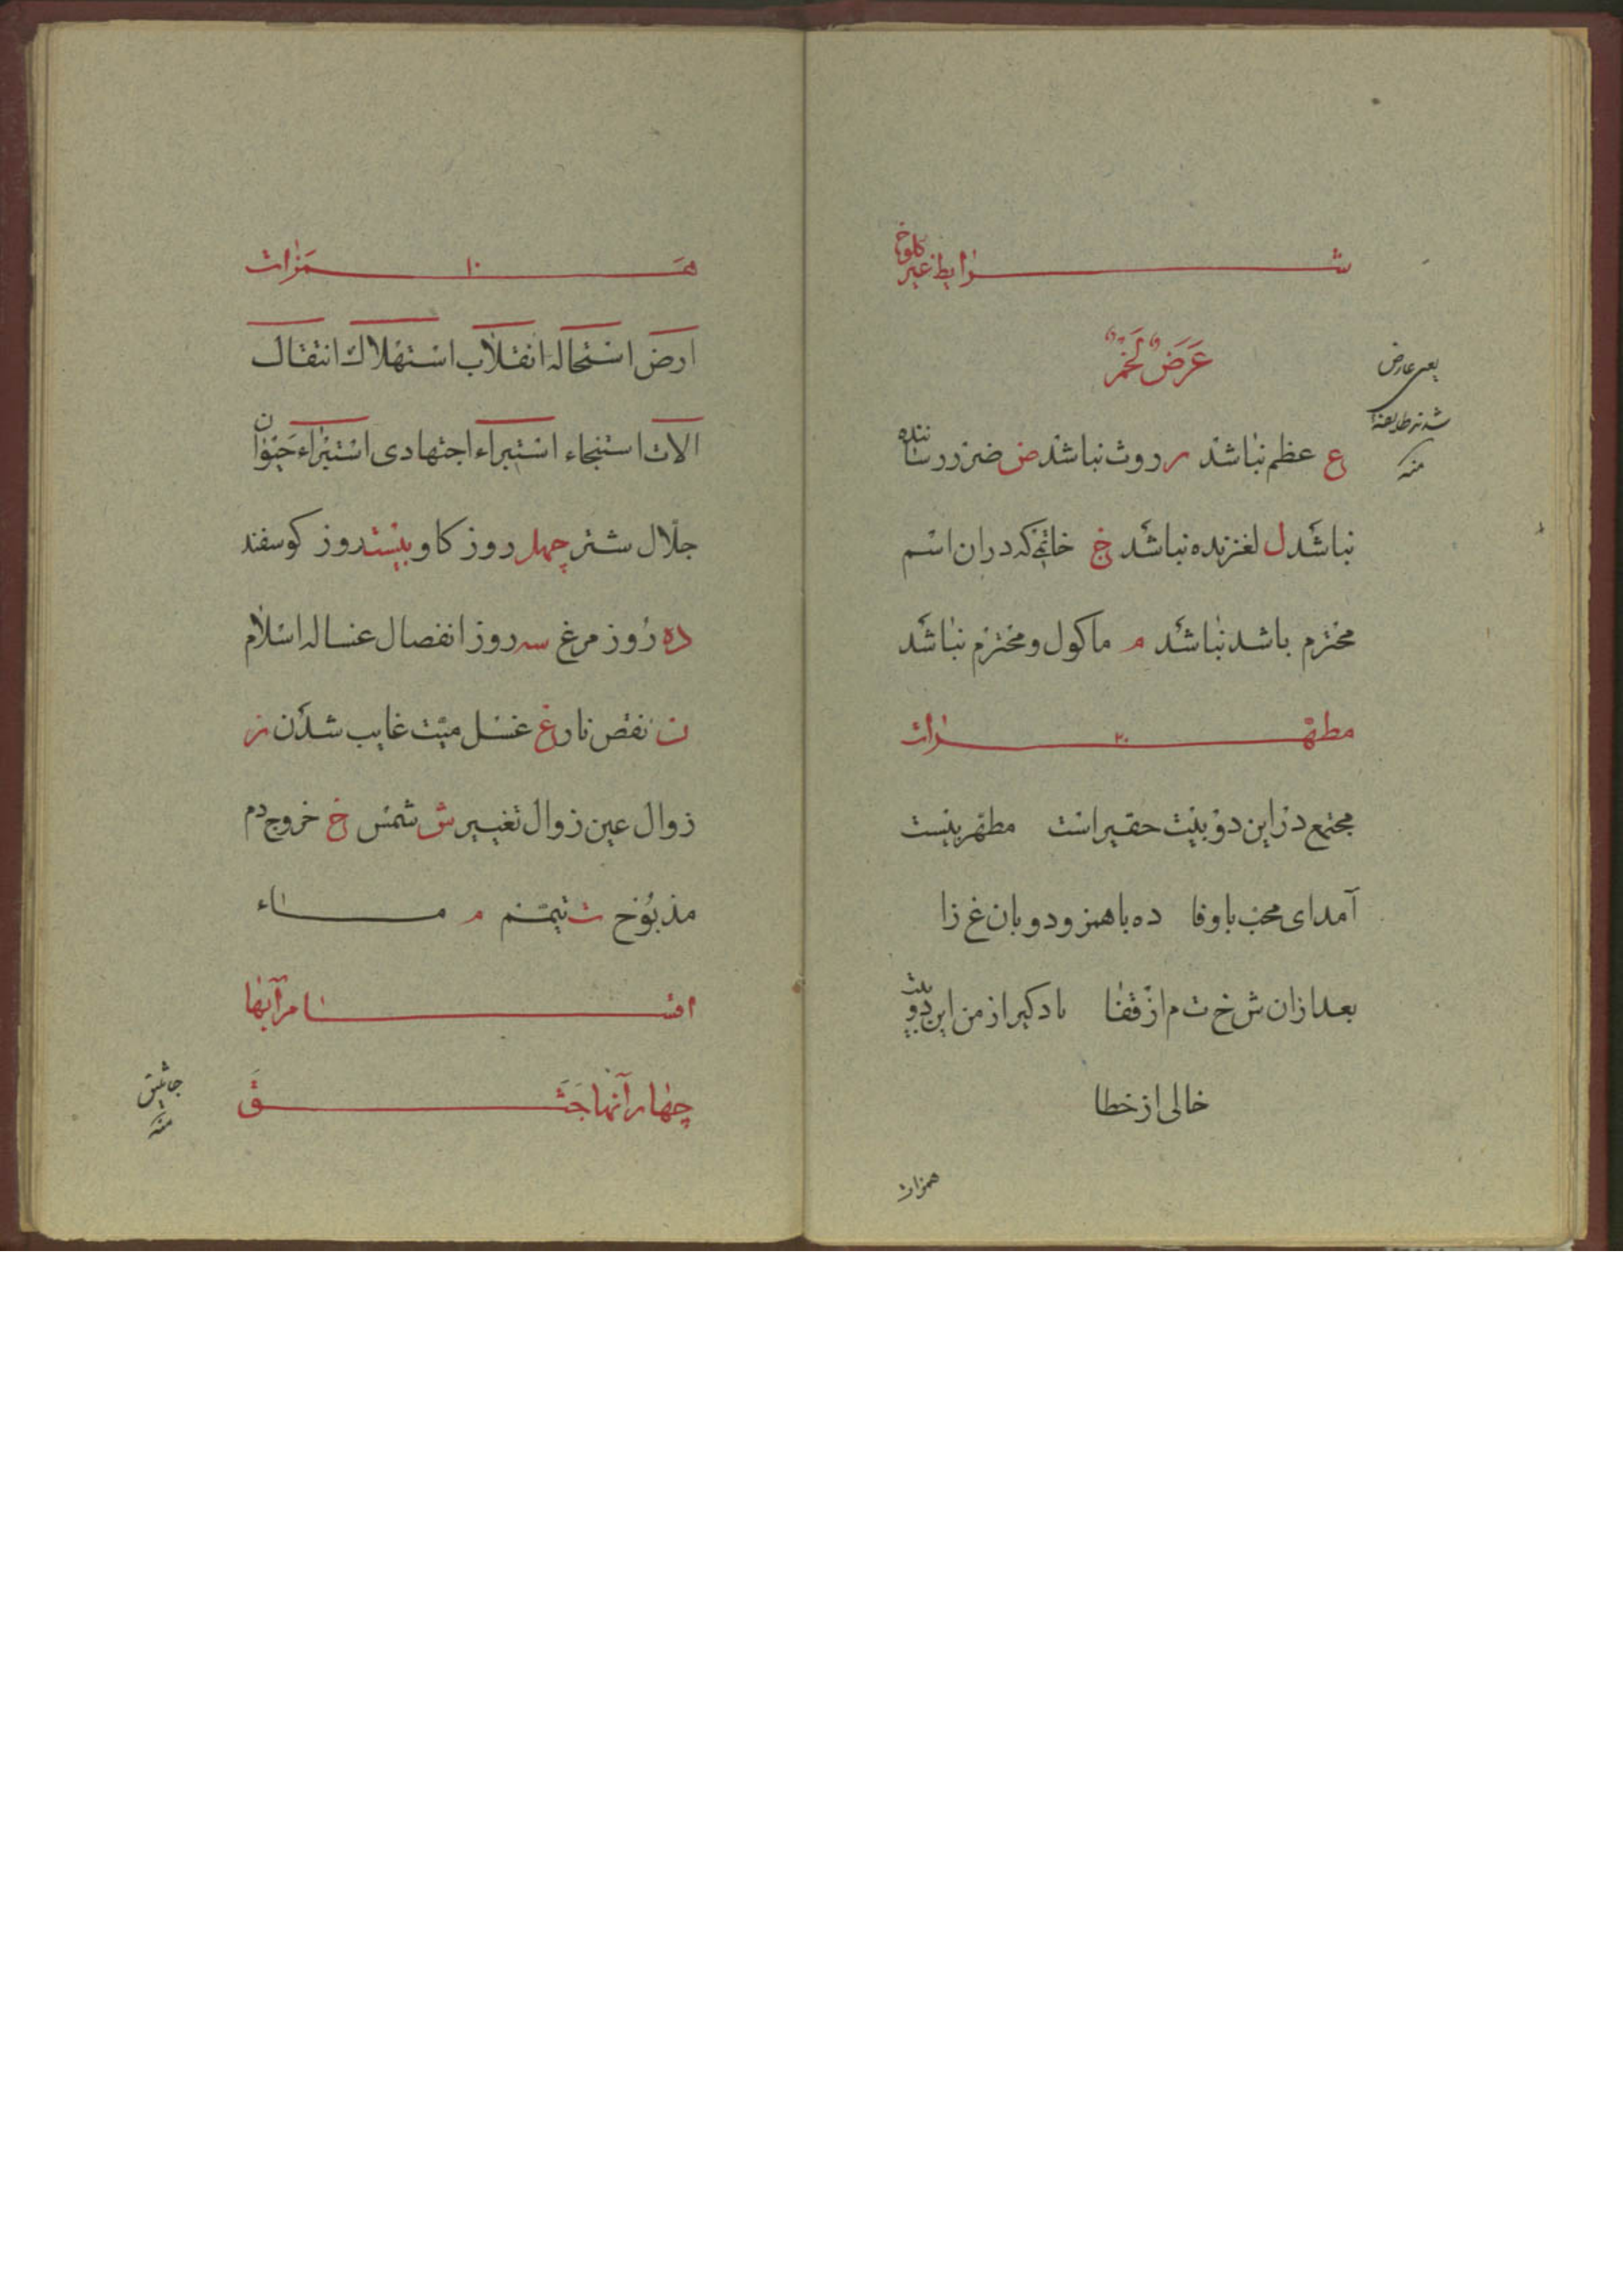 شرایط غیر کلوخ
عَرَضَ لَخَمَرَ
یعنی عارض
شد
منه
ع عظم نباشد ر روث نباشد ض ضرر رساننده
نباشد ل لغزنده نباشد خ خاتمی که در ان اسم
محترم باشد نباشد م ماکول و محترم نباشد
مطهرات ۲۰
مجتمع در این دو بیت حقیر است مطهر بیست
آمد ای محب با وفا ده با همز و دو با ن غ زا
بعد از ان ش خ ت م از قفا یاد کیر از من این دو بیت
خالی از خطا
همزات
همزات ۱۰
ارض استحاله انقلاب استهلاک انتقال
الات استنجاء استبراء اجتهادی استبراء حیوان
جلال شتر چهل روز کاو بیست روز کوسفند
ده روز مرغ سه روز انفصال غساله اسلام
ن نقص نار غ غسل میت غایب شدن ز
زوال عین زوال تغییر ش شمس خ خروج دم
مذبوخ ت تیمم م ماء
اقسام آبها
چهار آنها جَثَقَ
جاثیق
منه